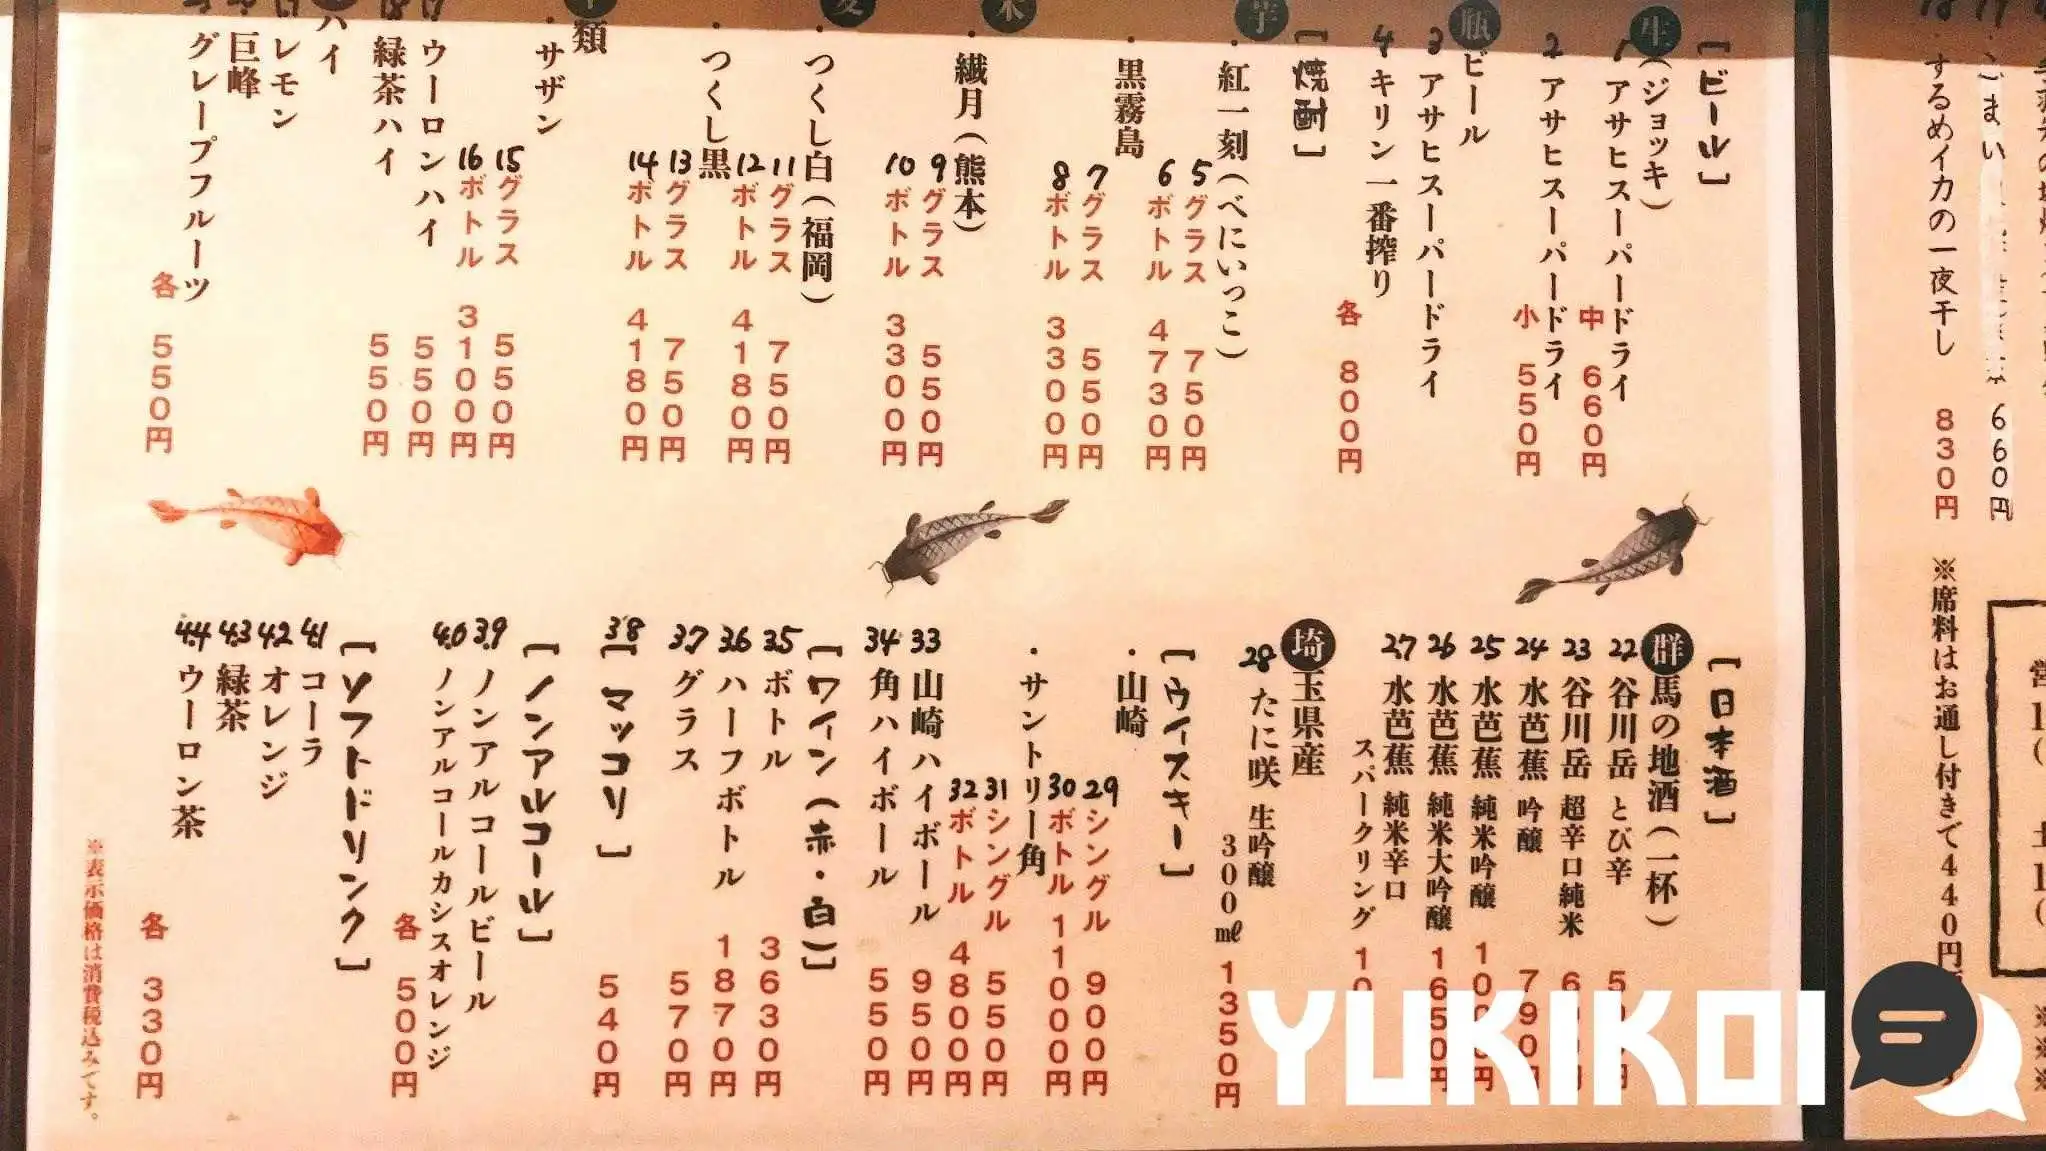 するめイカの一夜干し 830円
660円
※席料はお通し付きで440円
[ビール]
生(ジョッキ)
1 アサヒスーパードライ 中 660円
2 アサヒスーパードライ 小 550円
瓶ビール
3 アサヒスーパードライ
4 キリン一番搾り 各 800円
[焼酎]
芋
・紅一刻(べにいっこ)
5 グラス 750円
6 ボトル 4730円
・黒霧島
7 グラス 550円
8 ボトル 3300円
米
・繊月(熊本)
9 グラス 550円
10 ボトル 3300円
麦
・つくし白(福岡)
11 グラス 750円
12 ボトル 4180円
・つくし黒
13 グラス 750円
14 ボトル 4180円
類
・サザン
15 グラス 550円
16 ボトル 3100円
17 ウーロンハイ 550円
18 緑茶ハイ 550円
ハイ
レモン
巨峰
グレープフルーツ 各 550円
[日本酒]
群馬の地酒(一杯)
22 谷川岳 とび辛
23 谷川岳 超辛口純米
24 水芭蕉 吟醸 790円
25 水芭蕉 純米吟醸
26 水芭蕉 純米大吟醸 1650円
27 水芭蕉 純米辛口
スパークリング
埼玉県産
28 たに咲 生吟醸
300㎖ 1350円
[ウイスキー]
・山崎
29 シングル 900円
30 ボトル 11000円
・サントリー角
31 シングル 550円
32 ボトル 4800円
33 山崎ハイボール 950円
34 角ハイボール 550円
[ワイン(赤・白)]
35 ボトル 3630円
36 ハーフボトル 1870円
37 グラス 570円
38 [マッコリ] 540円
[ノンアルコール]
39 ノンアルコールビール
40 ノンアルコールカシスオレンジ 各 500円
[ソフトドリンク]
41 コーラ
42 オレンジ
43 緑茶
44 ウーロン茶 各 330円
※表示価格は消費税込みです。
YUKIKOI